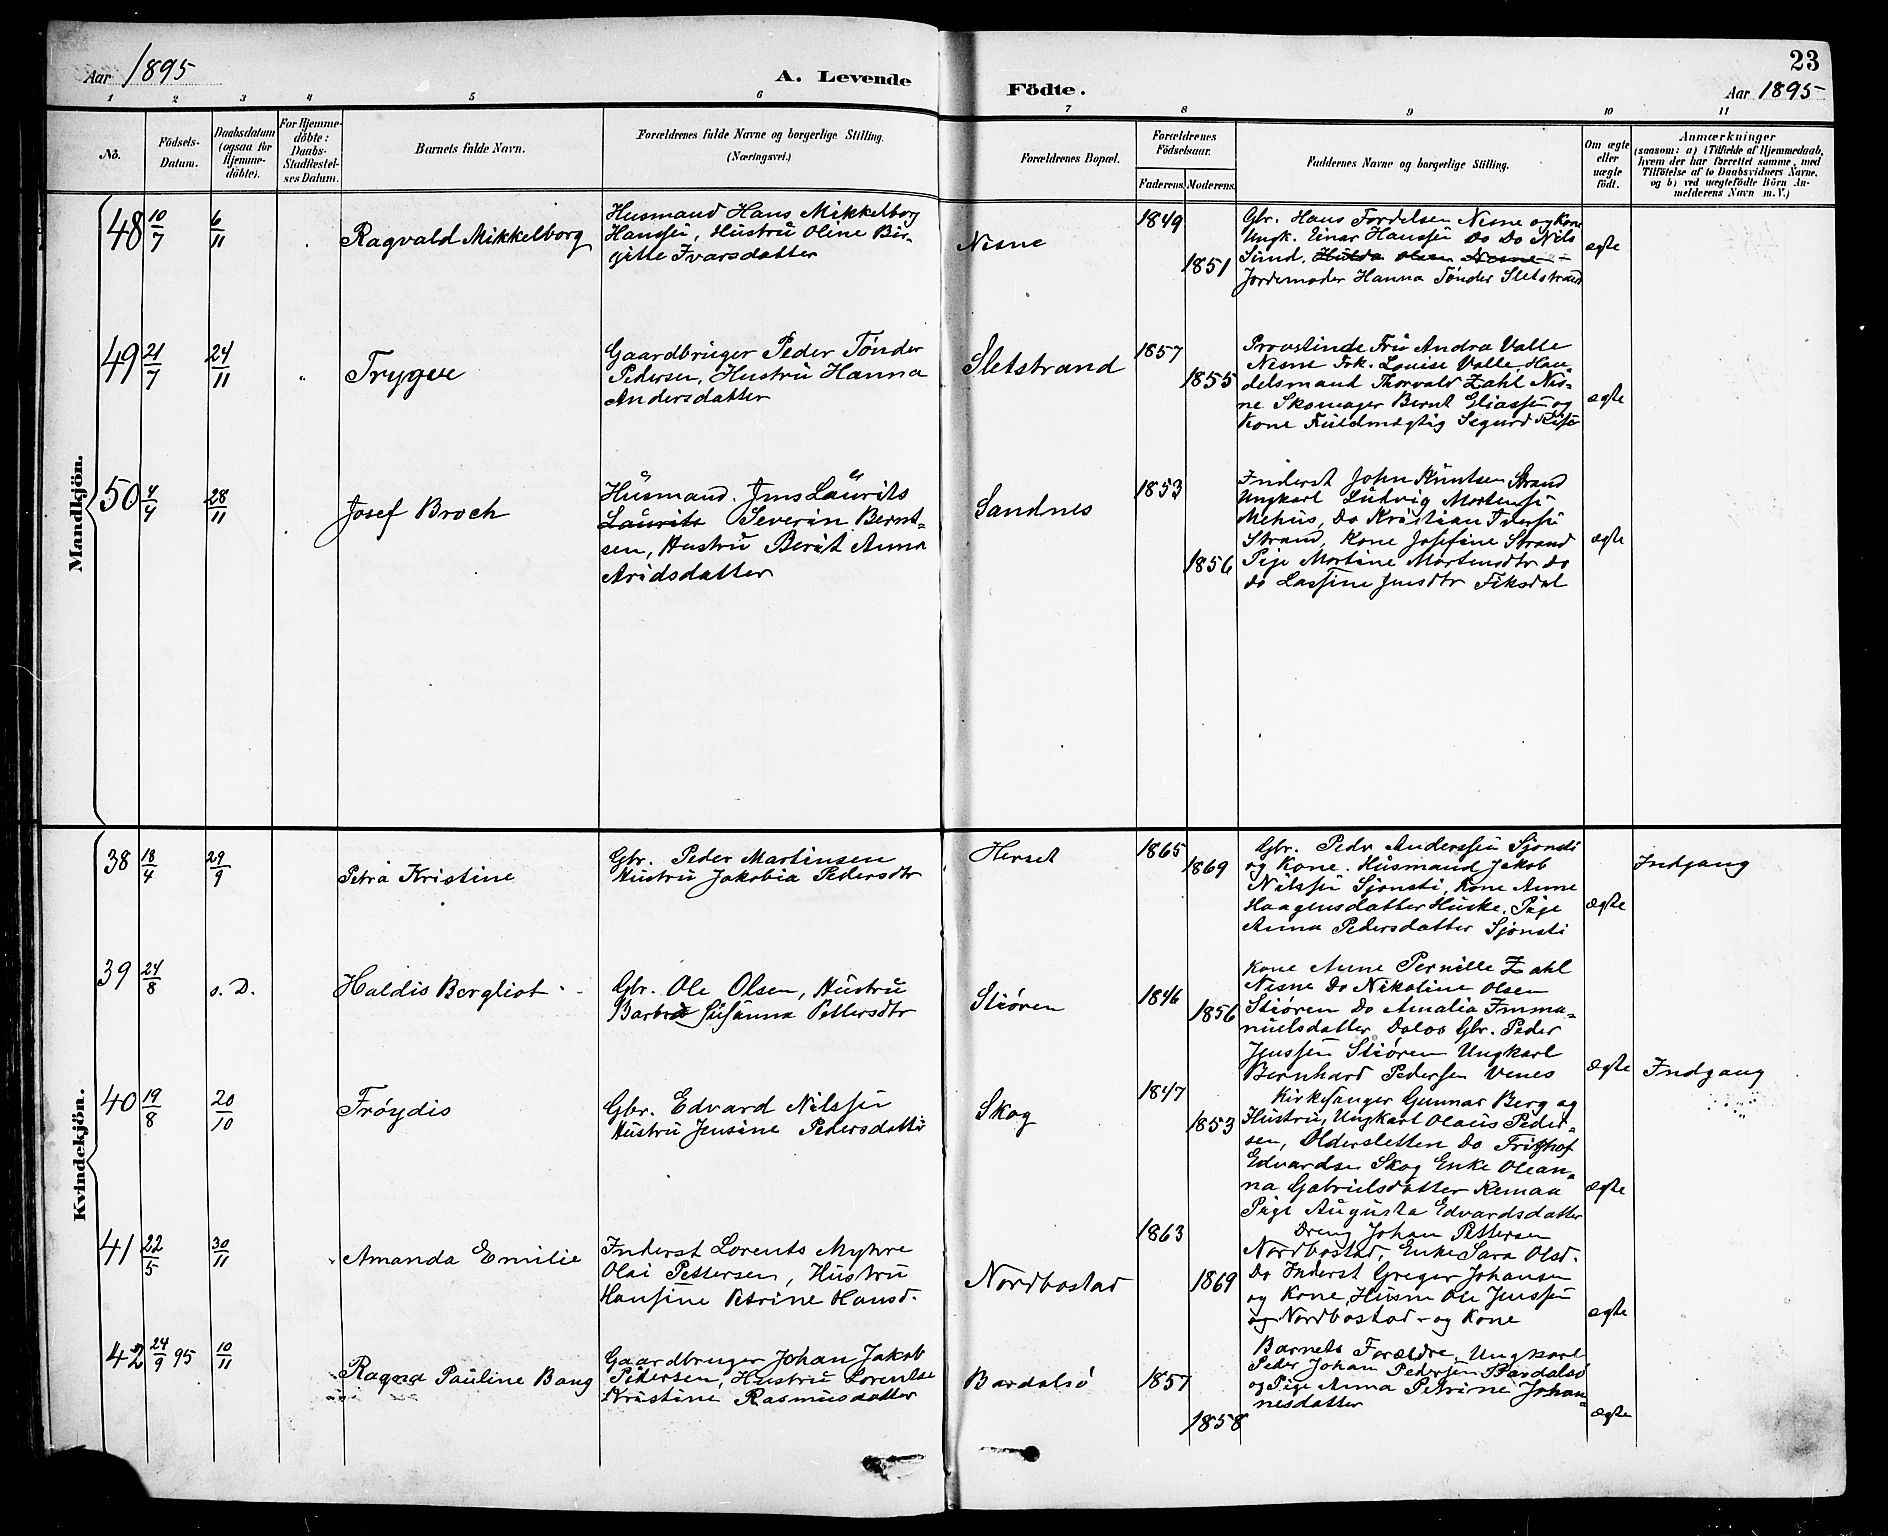 Aar 1895
A. Levende
Födte.
23
Aar 1895
1 2 3 4 5 6 7 8 9 10 11
No.
Födsels-
Datum.
Daabsdatum
(ogsaa for
Hjemme-
döbte).
For Hjemme-
döbte:
Daabs-
Stadfæstel-
ses Datum.
Barnets fulde Navn.
Forældrenes fulde Navne og borgerlige Stilling.
(Næringsvei.)
Forældrenes Bopæl.
Forældrenes
Födselsaar.
Faderens. Moderens.
Faddernes Navne og borgerlige Stilling.
Om ægte
eller
uægte
födt.
Anmærkninger
(saasom: a) i Tilfælde af Hjemmedaab,
hvem der har forrettet samme, med
Tilföielse af to Daabsvidners Navne,
og b) ved uægtefödte Börn An-
melderens Navn m. V.)
Mandkjön.
48 10/7 6/11
Ragvald Mikkelborg
Husmand Hans Mikkelborg
Hanssen, Hustru Oline Bir-
gitte Ivarsdatter
Nesne
1849
1851
Gbr. Hans Fordelsen Nesne og Kone
Ungk. Einar Hanssen Do Do Nils
Sund, Hulda Olsen Nesne
Jordemoder Hanna Tønder Sletstrand
ægte
49 21/7 24/11
Trygve
Gaardbruger Peder Tønder
Pedersen, Hustru Hanna
Andersdatter
Sletstrand
1857
1855
Provstinde Fru Andra Valle
Nesne Frk. Louise Valle Han-
delsmand Thorvald Zahl Nes-
ne Skomager Bernt Eliassen og
Kone Fuldmægtig Sigurd
ægte
50 4/4 28/11
Josef Broch
Husmand. Jens Laurits
Laurits Severin Bernt-
sen, Hustru Berit Anna
Aridsdatter
Sandnes
1853
1856
Inderst John Knutsen Strand
Ungkarl Ludvig Mortensen
Mehus, Do Kristian Iversen
Strand, Kone Josefine Strand
Pige Martine Mortensdtr Do
Do Lassine Jensdtr Fiksdal
ægte
Kvindekjön.
38 18/4 29/9
Petra Kristine
Gbr. Peder Martinsen
Hustru Jakobia Pedersdtr
Herset
1865
1869
Gbr. Pedr Anderssen Sjonsti
og Kone. Husmand Jakob
Nilssen Sjonsti, Kone Anne
Haagensdatter Huske. Pige
Anna Pedersdatter Sjonsti
ægte
Indgang
39 24/8 s. D.
Haldis Bergliot
Gbr. Ole Olsen, Hustru
Barbra Susanna Pettersdtr
Stiøren
1846
1856
Kone Anne Pernille Zahl
Nesne Do Nikoline Olsen
Stiøren Do Amalia Imma-
nuelsdatter Dalos Gbr. Peder
Jenssen Stiøren Ungkarl
Bernhard Pedersen Venes
ægte
Indgang
40 19/8 20/10
Frøydis
Gbr. Edvard Nilssen
Hustru Jensine Pedersdatter
Skog
1847
1853
Kirkesanger Gunnar Berg og
Hustru, Ungkarl Olaus Peder-
sen, Oldersletten Do Frithof
Edvardsen Skog Enke Olean-
na Gabrielsdatter Remaa
Pige Augusta Edvardsdatter
ægte
41 22/5 30/11
Amanda Emilie
Inderst Lorents Myhre
Olai Pettersen, Hustru
Hansine Petrine Hansd.
Nordbostad
1863
1869
Dreng Johan Pettersen
Nordbostad, Enke Sara Olsd.
Do Inderst Greger Johansen
og Kone, Husm Ole Jenssen
og Nordbostad - og Kone
ægte
42 24/9 95 10/11
Ragna Pauline Bang
Gaardbruger Johan Jakob
Pedersen, Hustru Lorentse
Kristine Rasmusdatter
Bardalsø
1857
1858
Barnets Forældre, Ungkarl
Peder Johan Pedersen Bardalsø
og Pige Anna Petrine Johan-
nesdatter
ægte